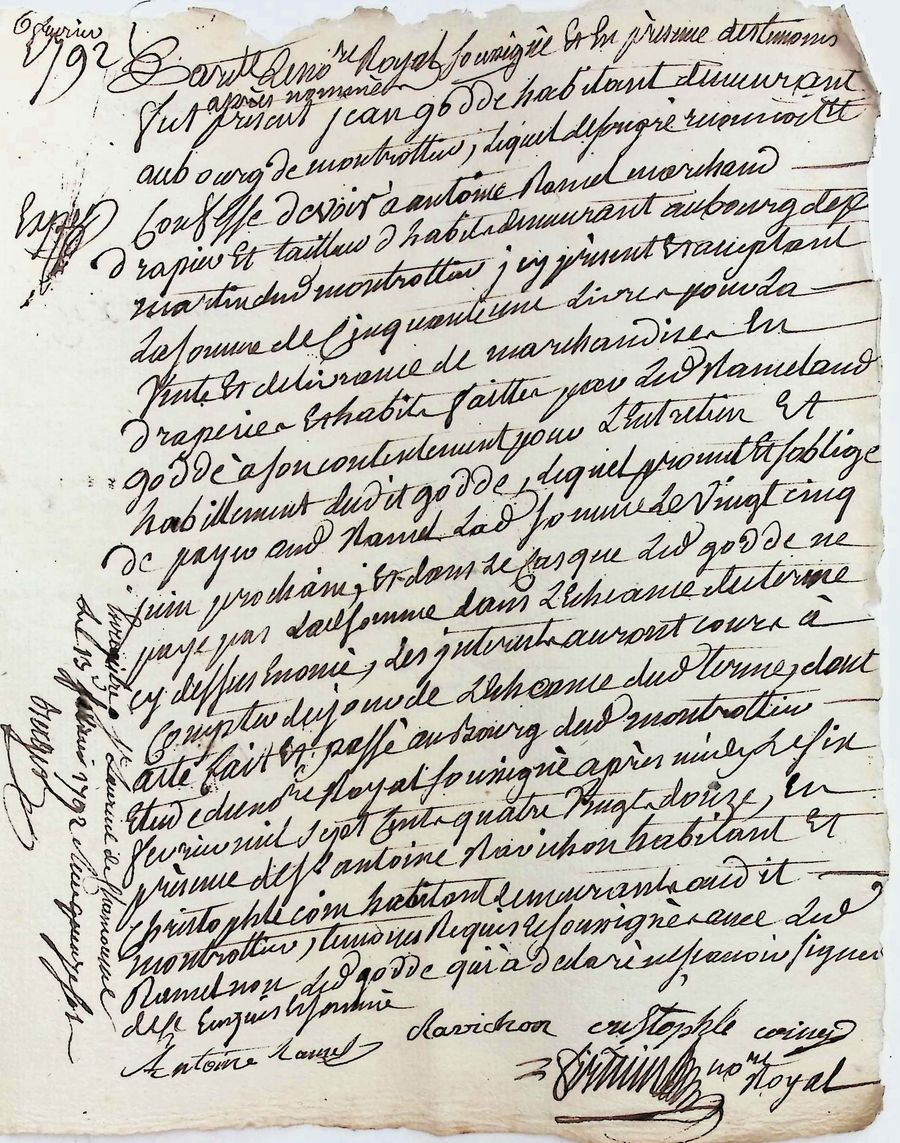 6 fevrier
1792
Pardt le nore Royal soussigné Et En présence des temoins
après nommés
fut présent jean godde habitant demeurant
au bourg de montrottier, lequel de son gré reconnoit et
Confesse devoir a antoine Ramel marchand
Expé
drapier Et tailleur d'habits demeurant au bourg de St
martin dud montrottier, icy présent Et acceptant
La somme de Cinquante une Livres pour La
Vente Et delivrance de marchandises En
draperies Et habits faittes par Led Ramel aud
goddé a son contentement pour L'Entretien Et
habillement dudit godde, lequel promet Et s'oblige
de payer aud Ramel Lad somme Le Vingt cinq
juin prochain; Et dans Le Cas que Led godde ne
paye pas Lad somme dans L'Echeance du terme
cy dessus Enoncé, Les interests auront cours à
Compter du jour de L'Echeance dud terme, dont
acte fait Et passé au Bourg dud montrottier
Etude du nore Royal soussigné après midy Le six
fevrier mil sept Cents quatre Vingt douze, En
présence de sr antoine Ravichon habitant Et
christophle coin habitant demeurants audit
montrottier, temoins Requis Et soussignés avec Led
Ramel non Led godde qui a declaré ne sçavoir signer
de ce Enquis Et sommé
Antoine Ramel Ravichon cristophle
nore Royal
Enregistré a St Laurent de Chamousset
Le 13 fevrier 1792